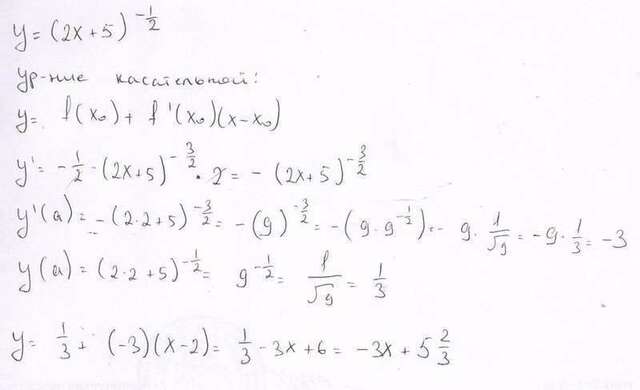 y = (2x+5)^{-\frac{1}{2}}
Ур-ние касательной:
y = f(x₀) + f'(x₀)(x-x₀)
y' = -\frac{1}{2} · (2x+5)^{-\frac{3}{2}} · 2 = - (2x+5)^{-\frac{3}{2}}
y'(a) = -(2·2+5)^{-\frac{3}{2}} = -(9)^{-\frac{3}{2}} = -(9·9^{-\frac{1}{2}}) = - 9 · \frac{1}{\sqrt{9}} = -9 · \frac{1}{3} = -3
y(a) = (2·2+5)^{-\frac{1}{2}} = 9^{-\frac{1}{2}} = \frac{1}{\sqrt{9}} = \frac{1}{3}
y = \frac{1}{3} + (-3)(x-2) = \frac{1}{3} - 3x + 6 = -3x + 5\frac{2}{3}